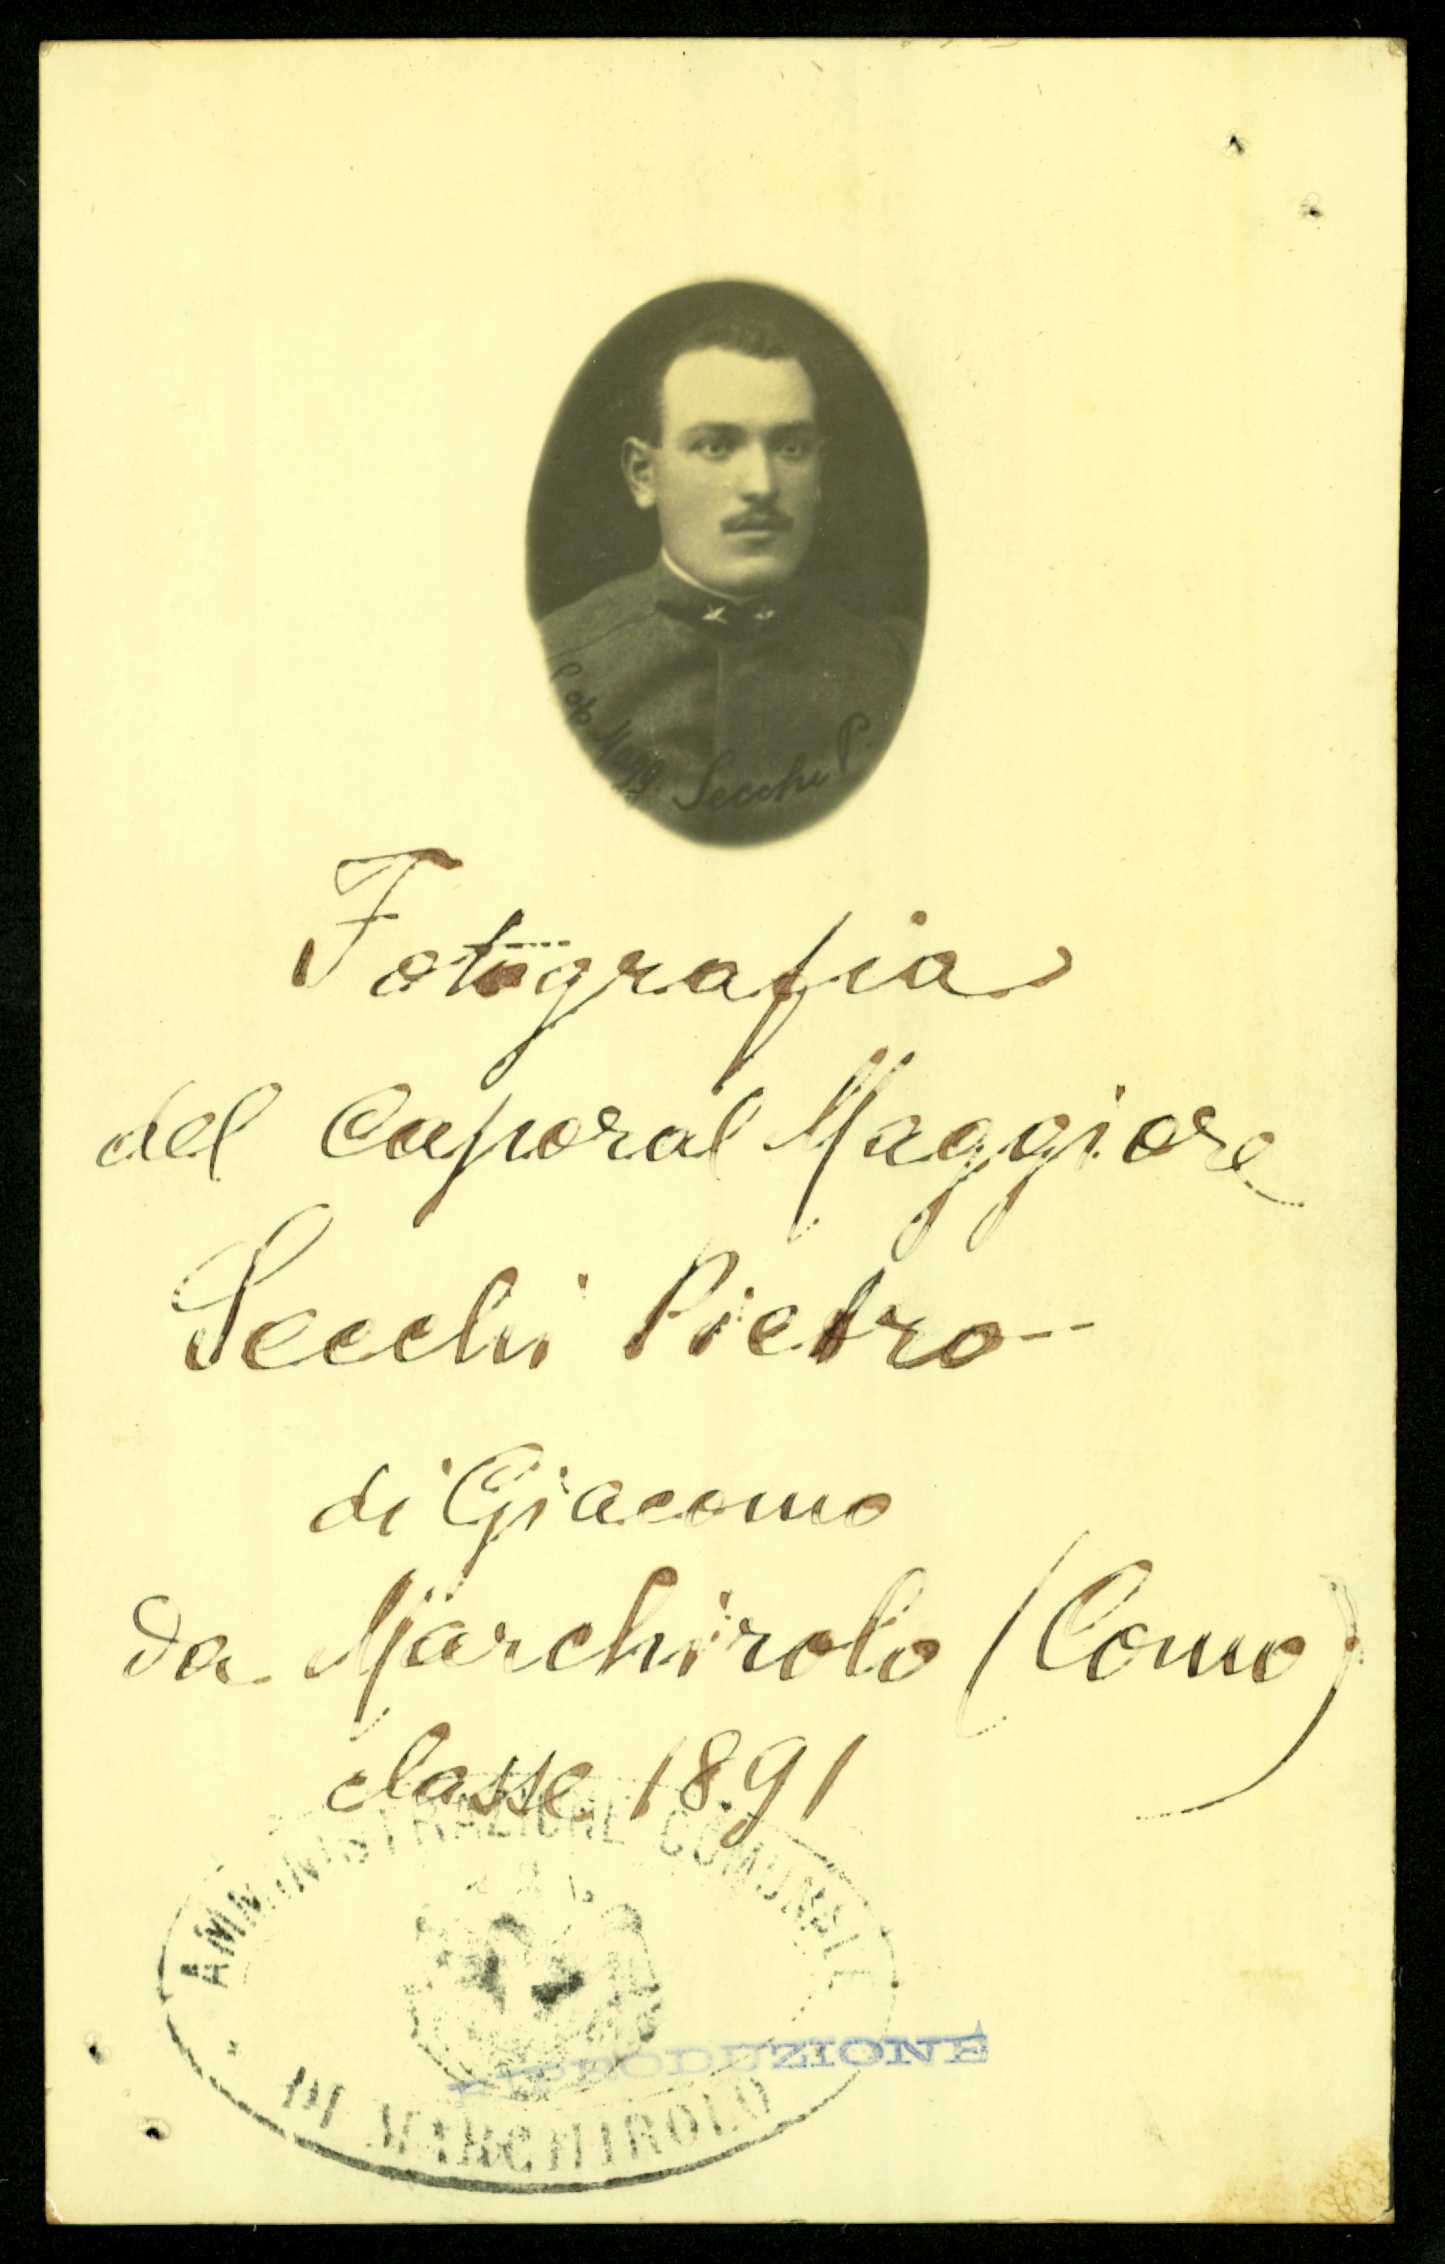 Cap. Magg. Secchi P.
Fotografia
del Caporal Maggiore
Secchi Pietro
di Giacomo
da Marchirolo (Como)
classe 1891
AMMINISTRAZIONE COMUNALE
DI MARCHIROLO
RIPRODUZIONE